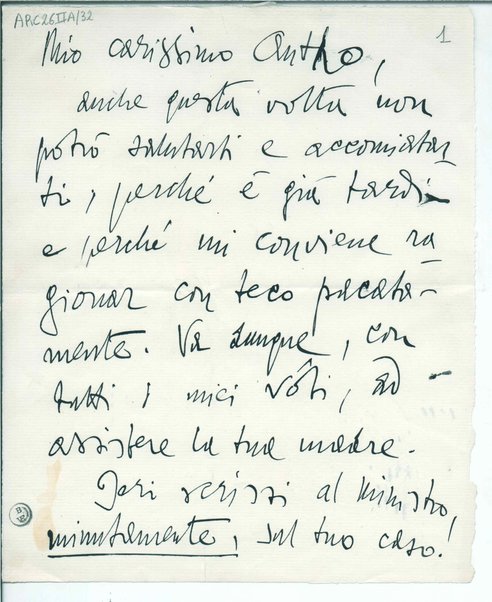 ARC26IIA/32
1
Mio carissimo Antro,
anche questa volta non
potrò salutarti e accomiatar
ti, perché è già tardi
e perché mi conviene ra
gionar con teco pacata-
mente. Va dunque, con
tutti i miei vôti, ad
assistere la tua madre.
Ieri scrissi al Ministro,
minutamente, sul tuo caso!